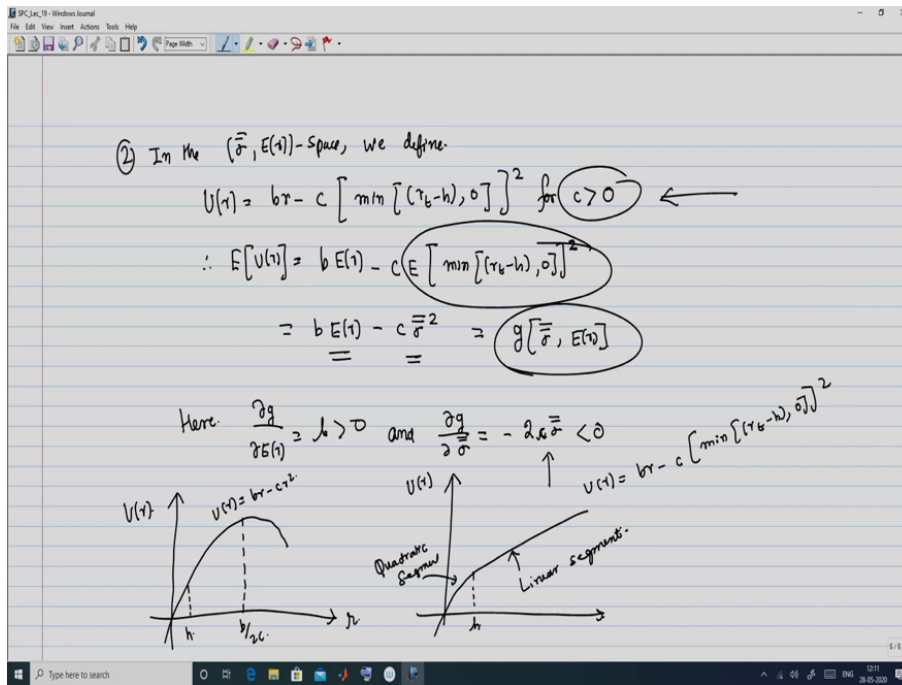 SPC_Lec_19 - Windows Journal
File Edit View Insert Actions Tools Help
Page Width
② In the (σ̿, E(r))-Space, we define.
U(r) = br - c [min[(r_t-h), 0]]² for c>0 ←
∴ E[U(r)] = b E(r) - c E[min[(r_t-h), 0]]²
= b E(r) - c σ̿² = g[σ̿, E(r)]
Here. ∂g/∂E(r) = b > 0 and ∂g/∂σ̿ = - 2cσ̿ < 0
U(r)
U(r) = br - cr².
h.
b/2c.
r.
U(r)
U(r) = br - c [min[(r_t-h), 0]]²
Quadratic
Linear segment.
h
6/6
Type here to search
ENG
12:11
28-05-2020